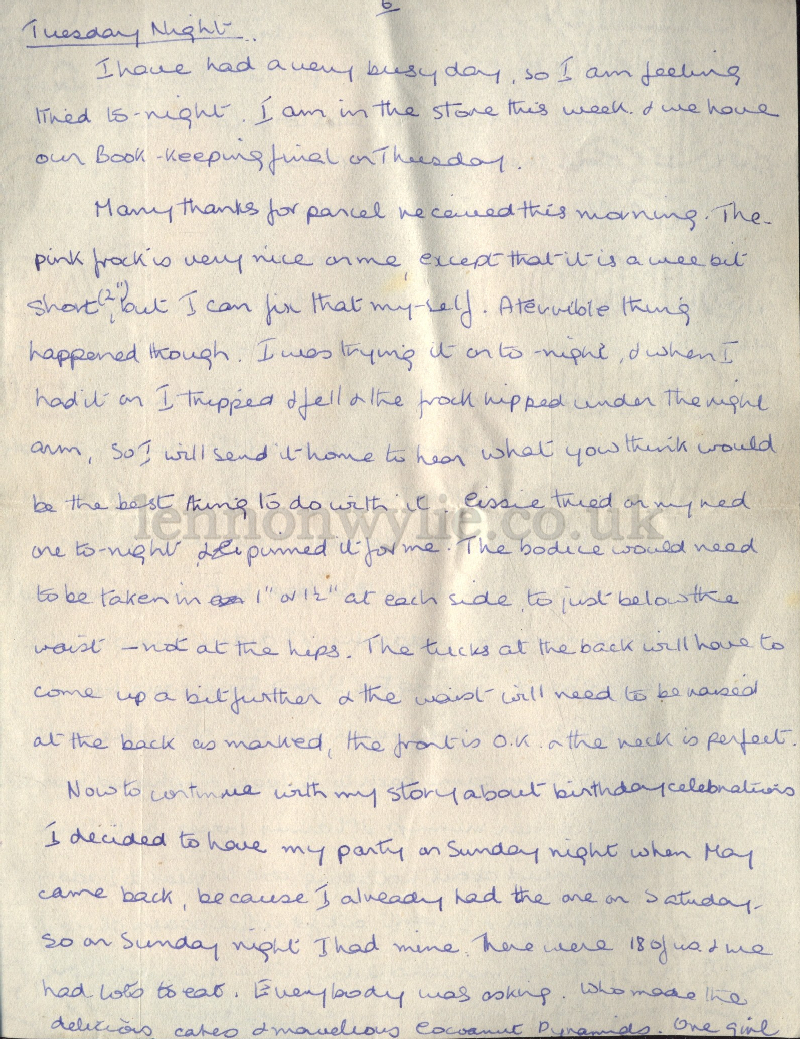 6
Tuesday Night..
I have had a very busy day, so I am feeling
tired to-night. I am in the store this week. & we have
our Book-keeping final on Thursday.
Many thanks for parcel received this morning. The
pink frock is very nice on me, except that it is a wee bit
short (2"), but I can fix that my-self. A terrible thing
happened though. I was trying it on to-night, & when I
had it on I tripped & fell & the frock ripped under the right
arm, so I will send it home to hear what you think would
be the best thing to do with it. Lissie tried on my red
one to-night, & pinned it for me. The bodice would need
to be taken in 1" or 1½" at each side, to just below the
waist - not at the hips. The tucks at the back will have to
come up a bit further & the waist will need to be raised
at the back as marked, the front is O.K. & the neck is perfect.
Now to continue with my story about birthday celebrations
I decided to have my party on Sunday night when May
came back, because I already had the one on Satuday.
so on Sunday night I had mine. There were 18 of us & we
had lots to eat. Everybody was asking. Who made the
delicious cakes & marvellous Cocoanut Pyramids. One girl
lennonwylie.co.uk